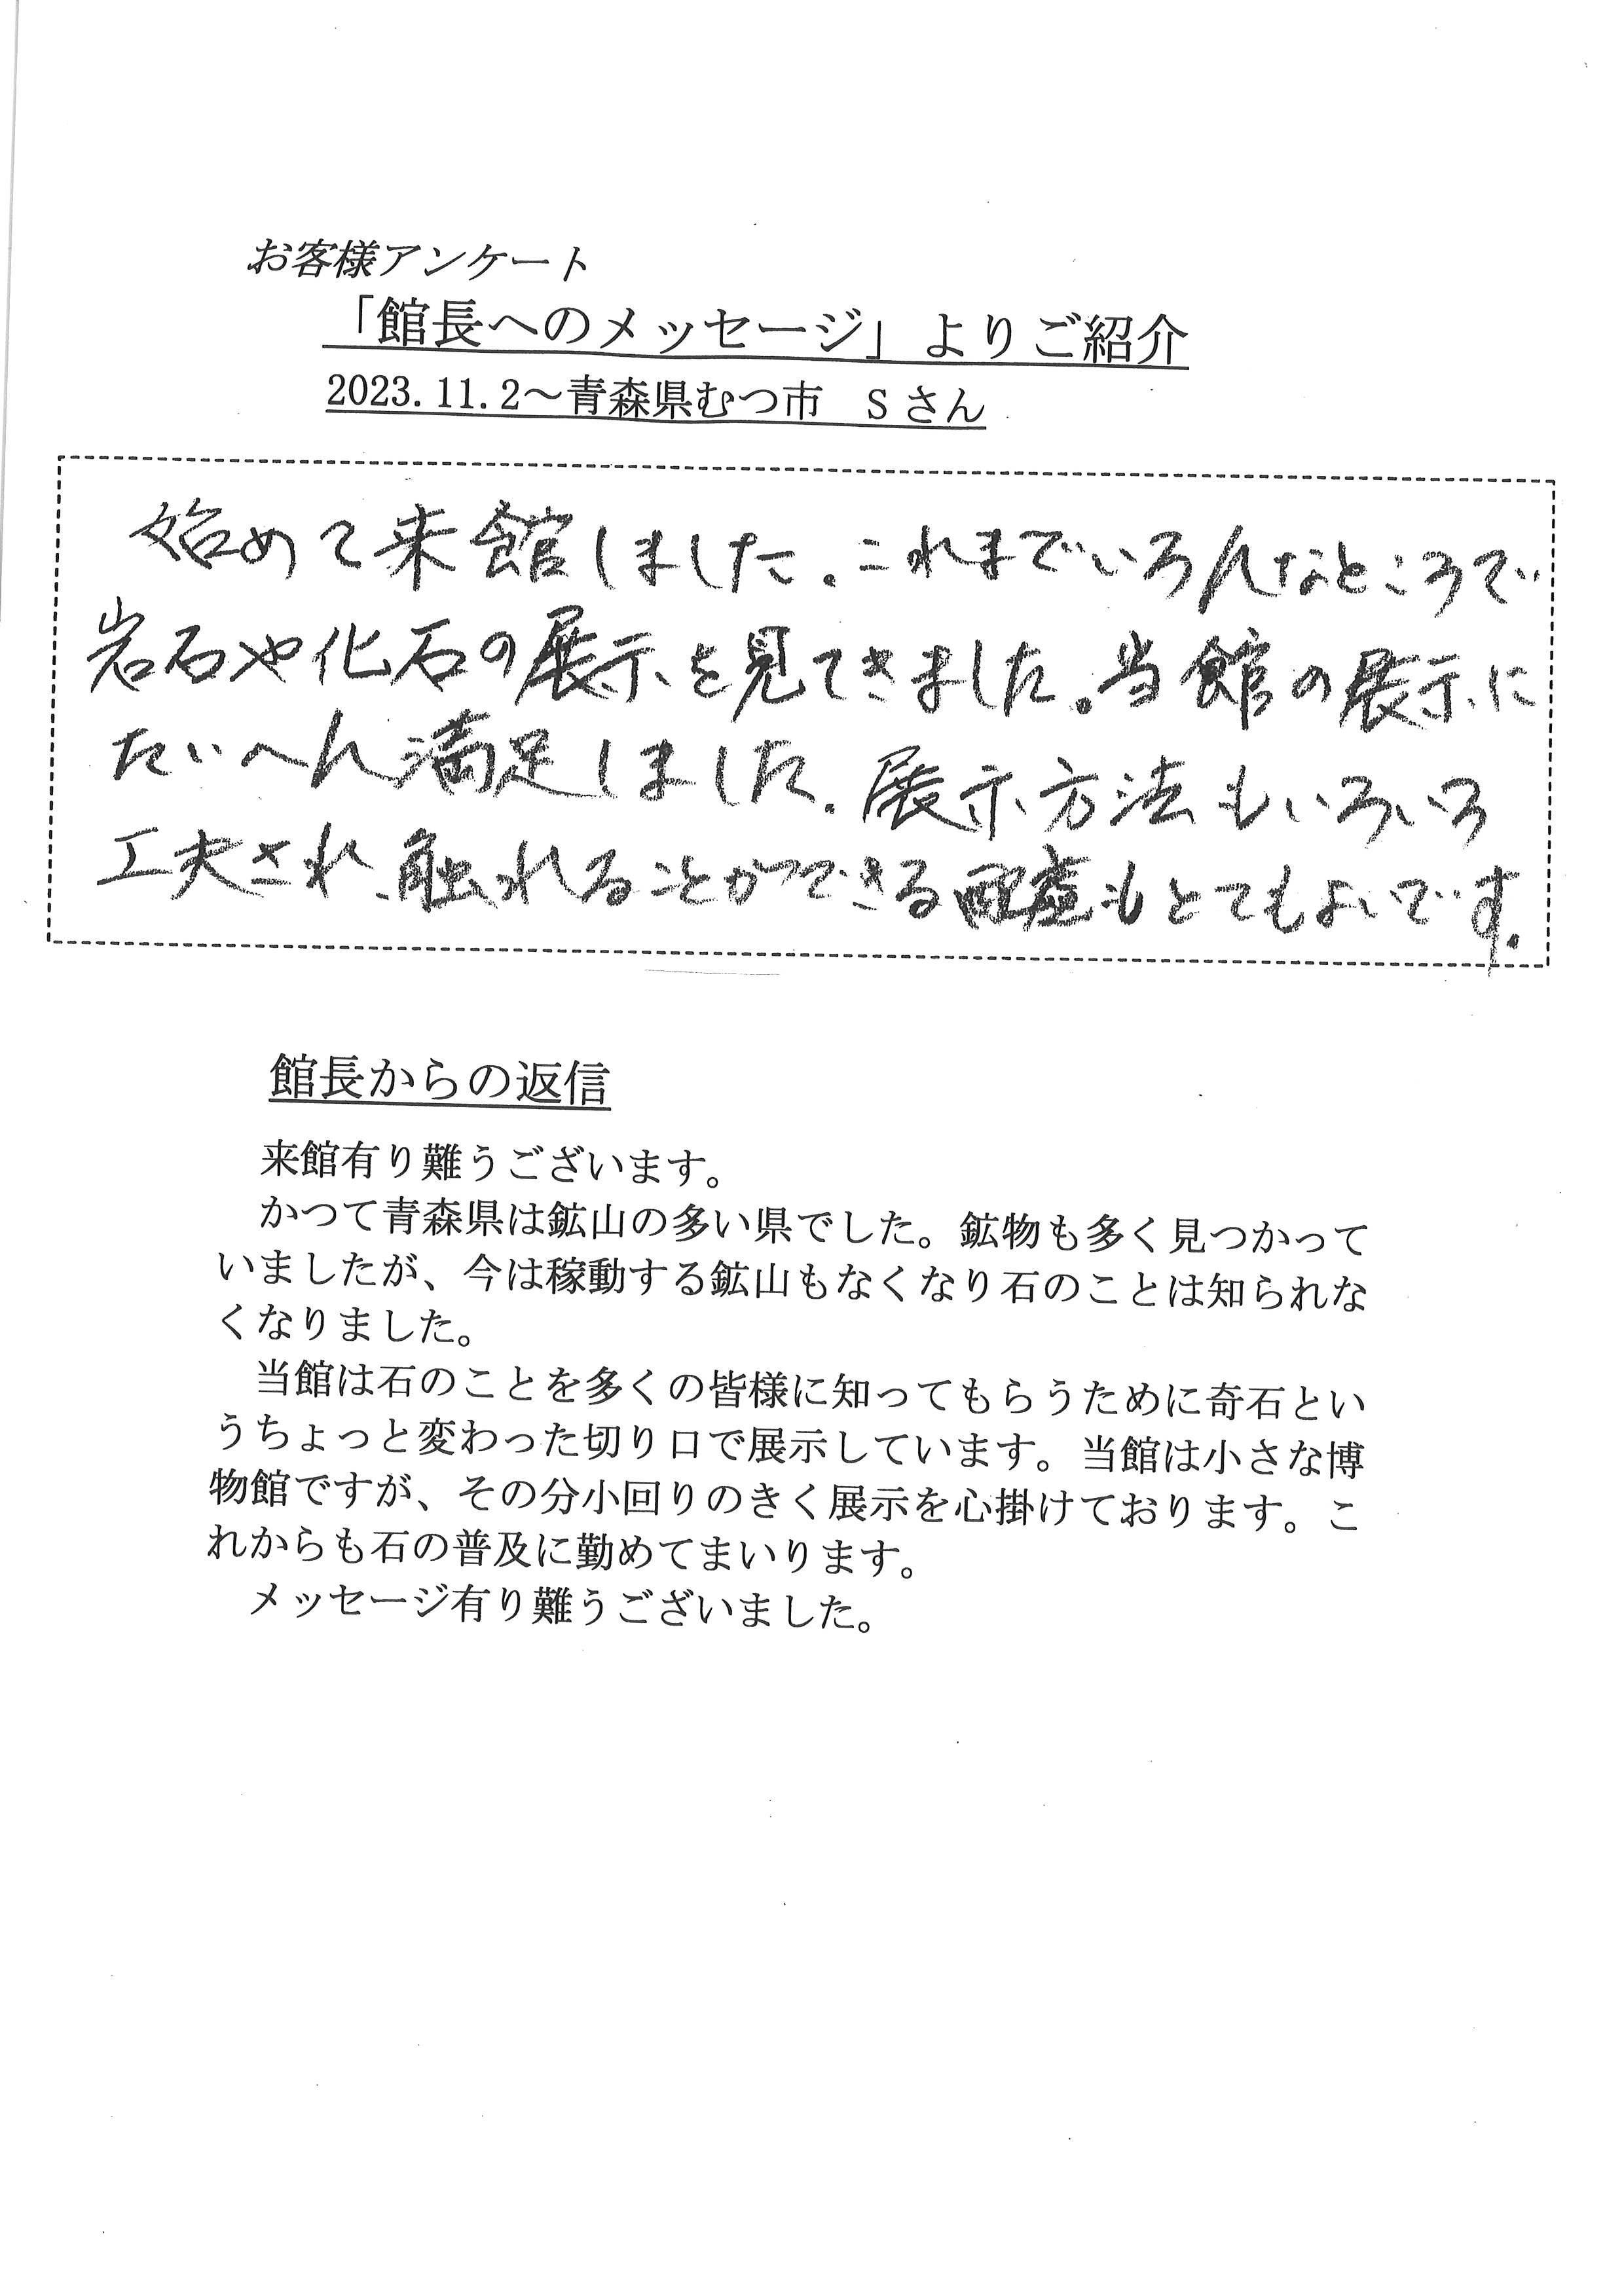 お客様アンケート
「館長へのメッセージ」よりご紹介
2023.11.2～青森県むつ市　Sさん
始めて来館しました。これまでいろんなところで
岩石や化石の展示を見てきました。当館の展示に
たいへん満足しました。展示方法もいろいろ
工夫され、触れることができる配慮もとてもよいです。
館長からの返信
来館有り難うございます。
かつて青森県は鉱山の多い県でした。鉱物も多く見つかって
いましたが、今は稼動する鉱山もなくなり石のことは知られな
くなりました。
当館は石のことを多くの皆様に知ってもらうために奇石とい
うちょっと変わった切り口で展示しています。当館は小さな博
物館ですが、その分小回りのきく展示を心掛けております。こ
れからも石の普及に勤めてまいります。
メッセージ有り難うございました。